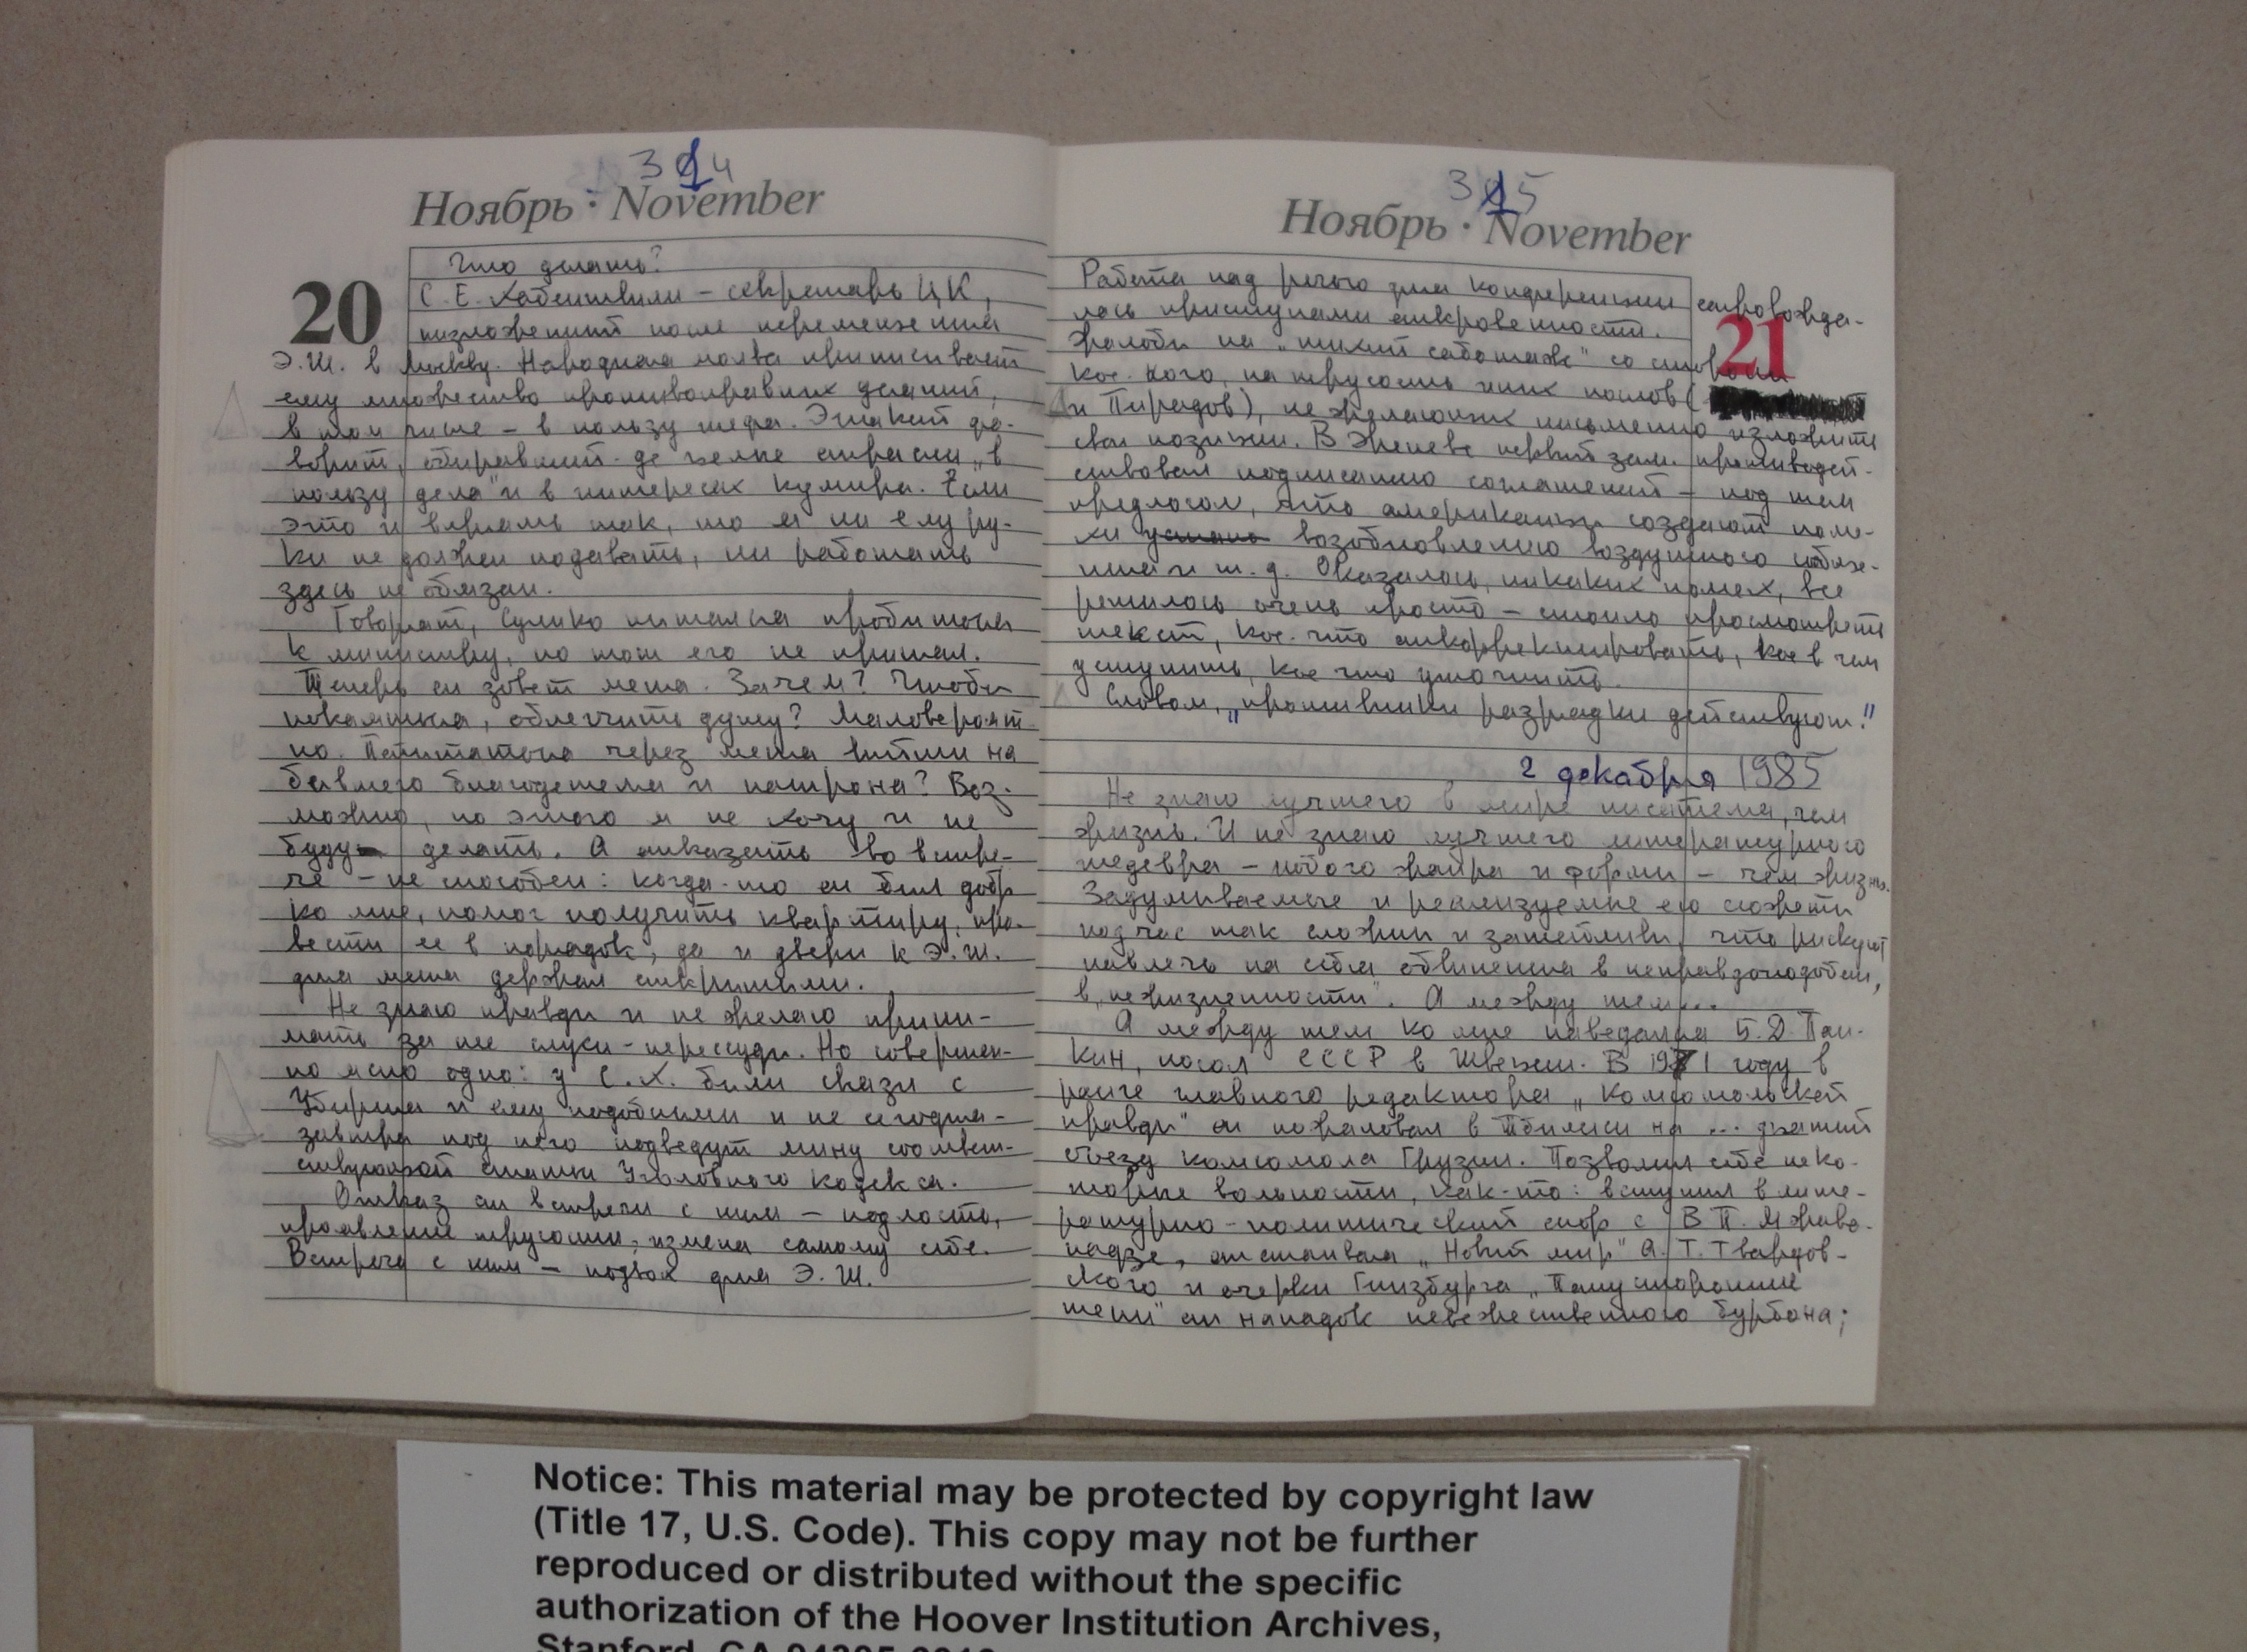 314
Ноябрь · November
20
Что делать?
С. Е. Хабеишвили – секретарь ЦК,
низложенный после перемещения
Э.Ш. в Москву. Народная молва приписывает
ему множество противоправных деяний,
в том числе – в пользу шефа. Этакий фа-
ворит, обиравший де челне страсти „в
пользу дела" и в интересах кумира. Если
это и впрямь так, то я ни ему ру-
ки не должен подавать, ни работать
здесь не обязан.
Говорят, Сулико пытался пробиться
к министру, но тот его не принял.
Теперь он зовет меня. Зачем? Чтобы
покаяться, облегчить душу? Маловероят-
но. Попытаться через меня выйти на
бывшего благодетеля и патрона? Воз-
можно, но этого я не хочу и не
буду делать. А отказать во встре-
че – не способен: когда-то он был добр
ко мне, помог получить квартиру, при-
вести ее в порядок, да и двери к Э.Ш.
для меня держал открытыми.
Не знаю правды и не желаю прини-
мать за нее слухи-пересуды. Но совершен-
но ясно одно: у С.Х. были связи с
Убирия и ему подобными и не сегодня-
завтра под него подведут мину соответ-
ствующей статьи Уголовного кодекса.
Отказ от встречи с ним – подлость,
проявление трусости, измена самому себе.
Встреча с ним – подвох для Э.Ш.
315
Ноябрь · November
21
Работа над речью для конференции сопровожда-
лась приступами откровенности.
Жалобы на „тихий саботаж" со стороны
кое-кого, на трусость иных послов (
и Пирадов), не желающих письменно изложить
свои позиции. В Женеве первый зам. противодей-
ствовал подписанию соглашений – под тем
предлогом, что американцы создают поме-
хи возобновлению воздушного сообще-
ния и т.д. Оказалось, никаких помех, все
решилось очень просто – стоило просмотреть
текст, кое-что откорректировать, кое в чем
уступить, кое что уточнить.
Словом, „противники разрядки действуют!"
2 декабря 1985
Не знаю лучшего в мире писателя, чем
жизнь. И не знаю лучшего литературного
шедевра – любого жанра и формы – чем жизнь.
Задумываемые и реализуемые ею сюжеты
подчас так сложны и затейливы, что рискуют
навлечь на себя обвинения в неправдоподобии,
в „нежизненности". А между тем...
А между тем ко мне наведался Б.Д. Пан-
кин, посол СССР в Швеции. В 1971 году в
ранге главного редактора „Комсомольской
правды" он пожаловал в Тбилиси на ... дцатый
съезд комсомола Грузии. Позволил себе неко-
торые вольности, как-то: вступил в лите-
ратурно-политический спор с В.П. Мжава-
надзе, отстаивая „Новый мир" А.Т. Твардов-
ского и очерки Гинзбурга „Потусторонние
тени" от нападок невежественного бурбона;
Notice: This material may be protected by copyright law
(Title 17, U.S. Code). This copy may not be further
reproduced or distributed without the specific
authorization of the Hoover Institution Archives,
Stanford, CA 94305-6010